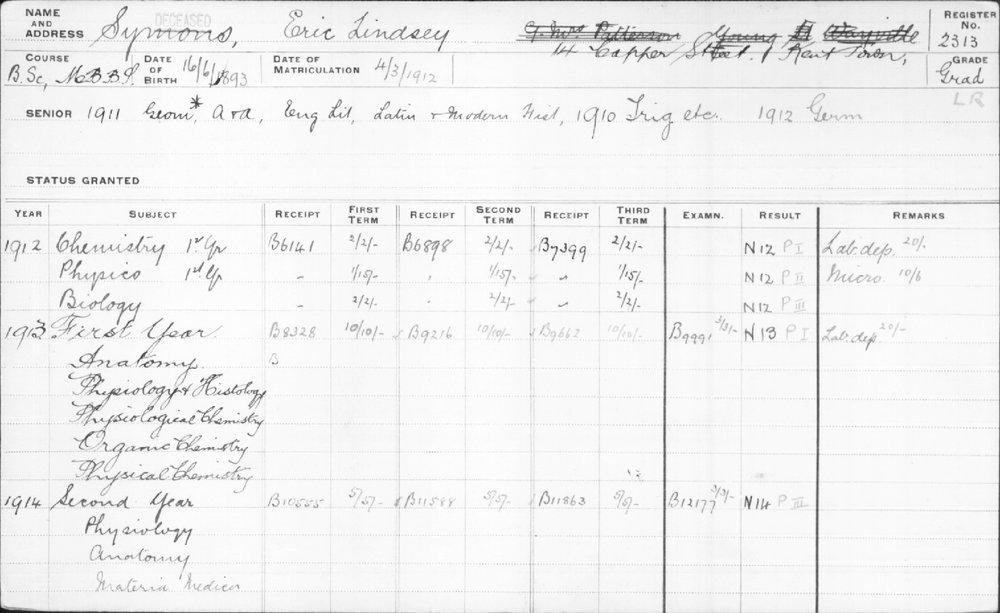 NAME AND ADDRESS Symons, Eric Lindsey DECEASED
14 Capper Street, Kent Town,
REGISTER No. 2313
COURSE B.Sc, M.B.B.S. DATE OF BIRTH 16/6/1893 DATE OF MATRICULATION 4/3/1912 GRADE Grad
LR
SENIOR 1911 Geom*, A & A, Eng Lit, Latin & Modern Hist, 1910 Trig etc. 1912 Germ
STATUS GRANTED
YEAR SUBJECT RECEIPT FIRST TERM RECEIPT SECOND TERM RECEIPT THIRD TERM EXAMN. RESULT REMARKS
1912 Chemistry 1st Yr B6141 2/2/- B6898 2/2/- B7399 2/2/- N12 P I Lab. dep. 20/-
Physics 1st Yr - 1/15/- " 1/15/- " 1/15/- N12 P II Micro. 10/6
Biology - 2/2/- " 2/2/- " 2/2/- N12 P III
1913 First Year B8328 10/10/- B9216 10/10/- B9662 10/10/- B9991 3/3/- N13 P I Lab. dep. 20/-
Anatomy B
Physiology & Histology
Physiological Chemistry
Organic Chemistry
Physical Chemistry
1914 Second Year B10555 5/5/- B11588 5/5/- B11863 5/5/- B12177 3/3/- N14 P III
Physiology
Anatomy
Materia Medica